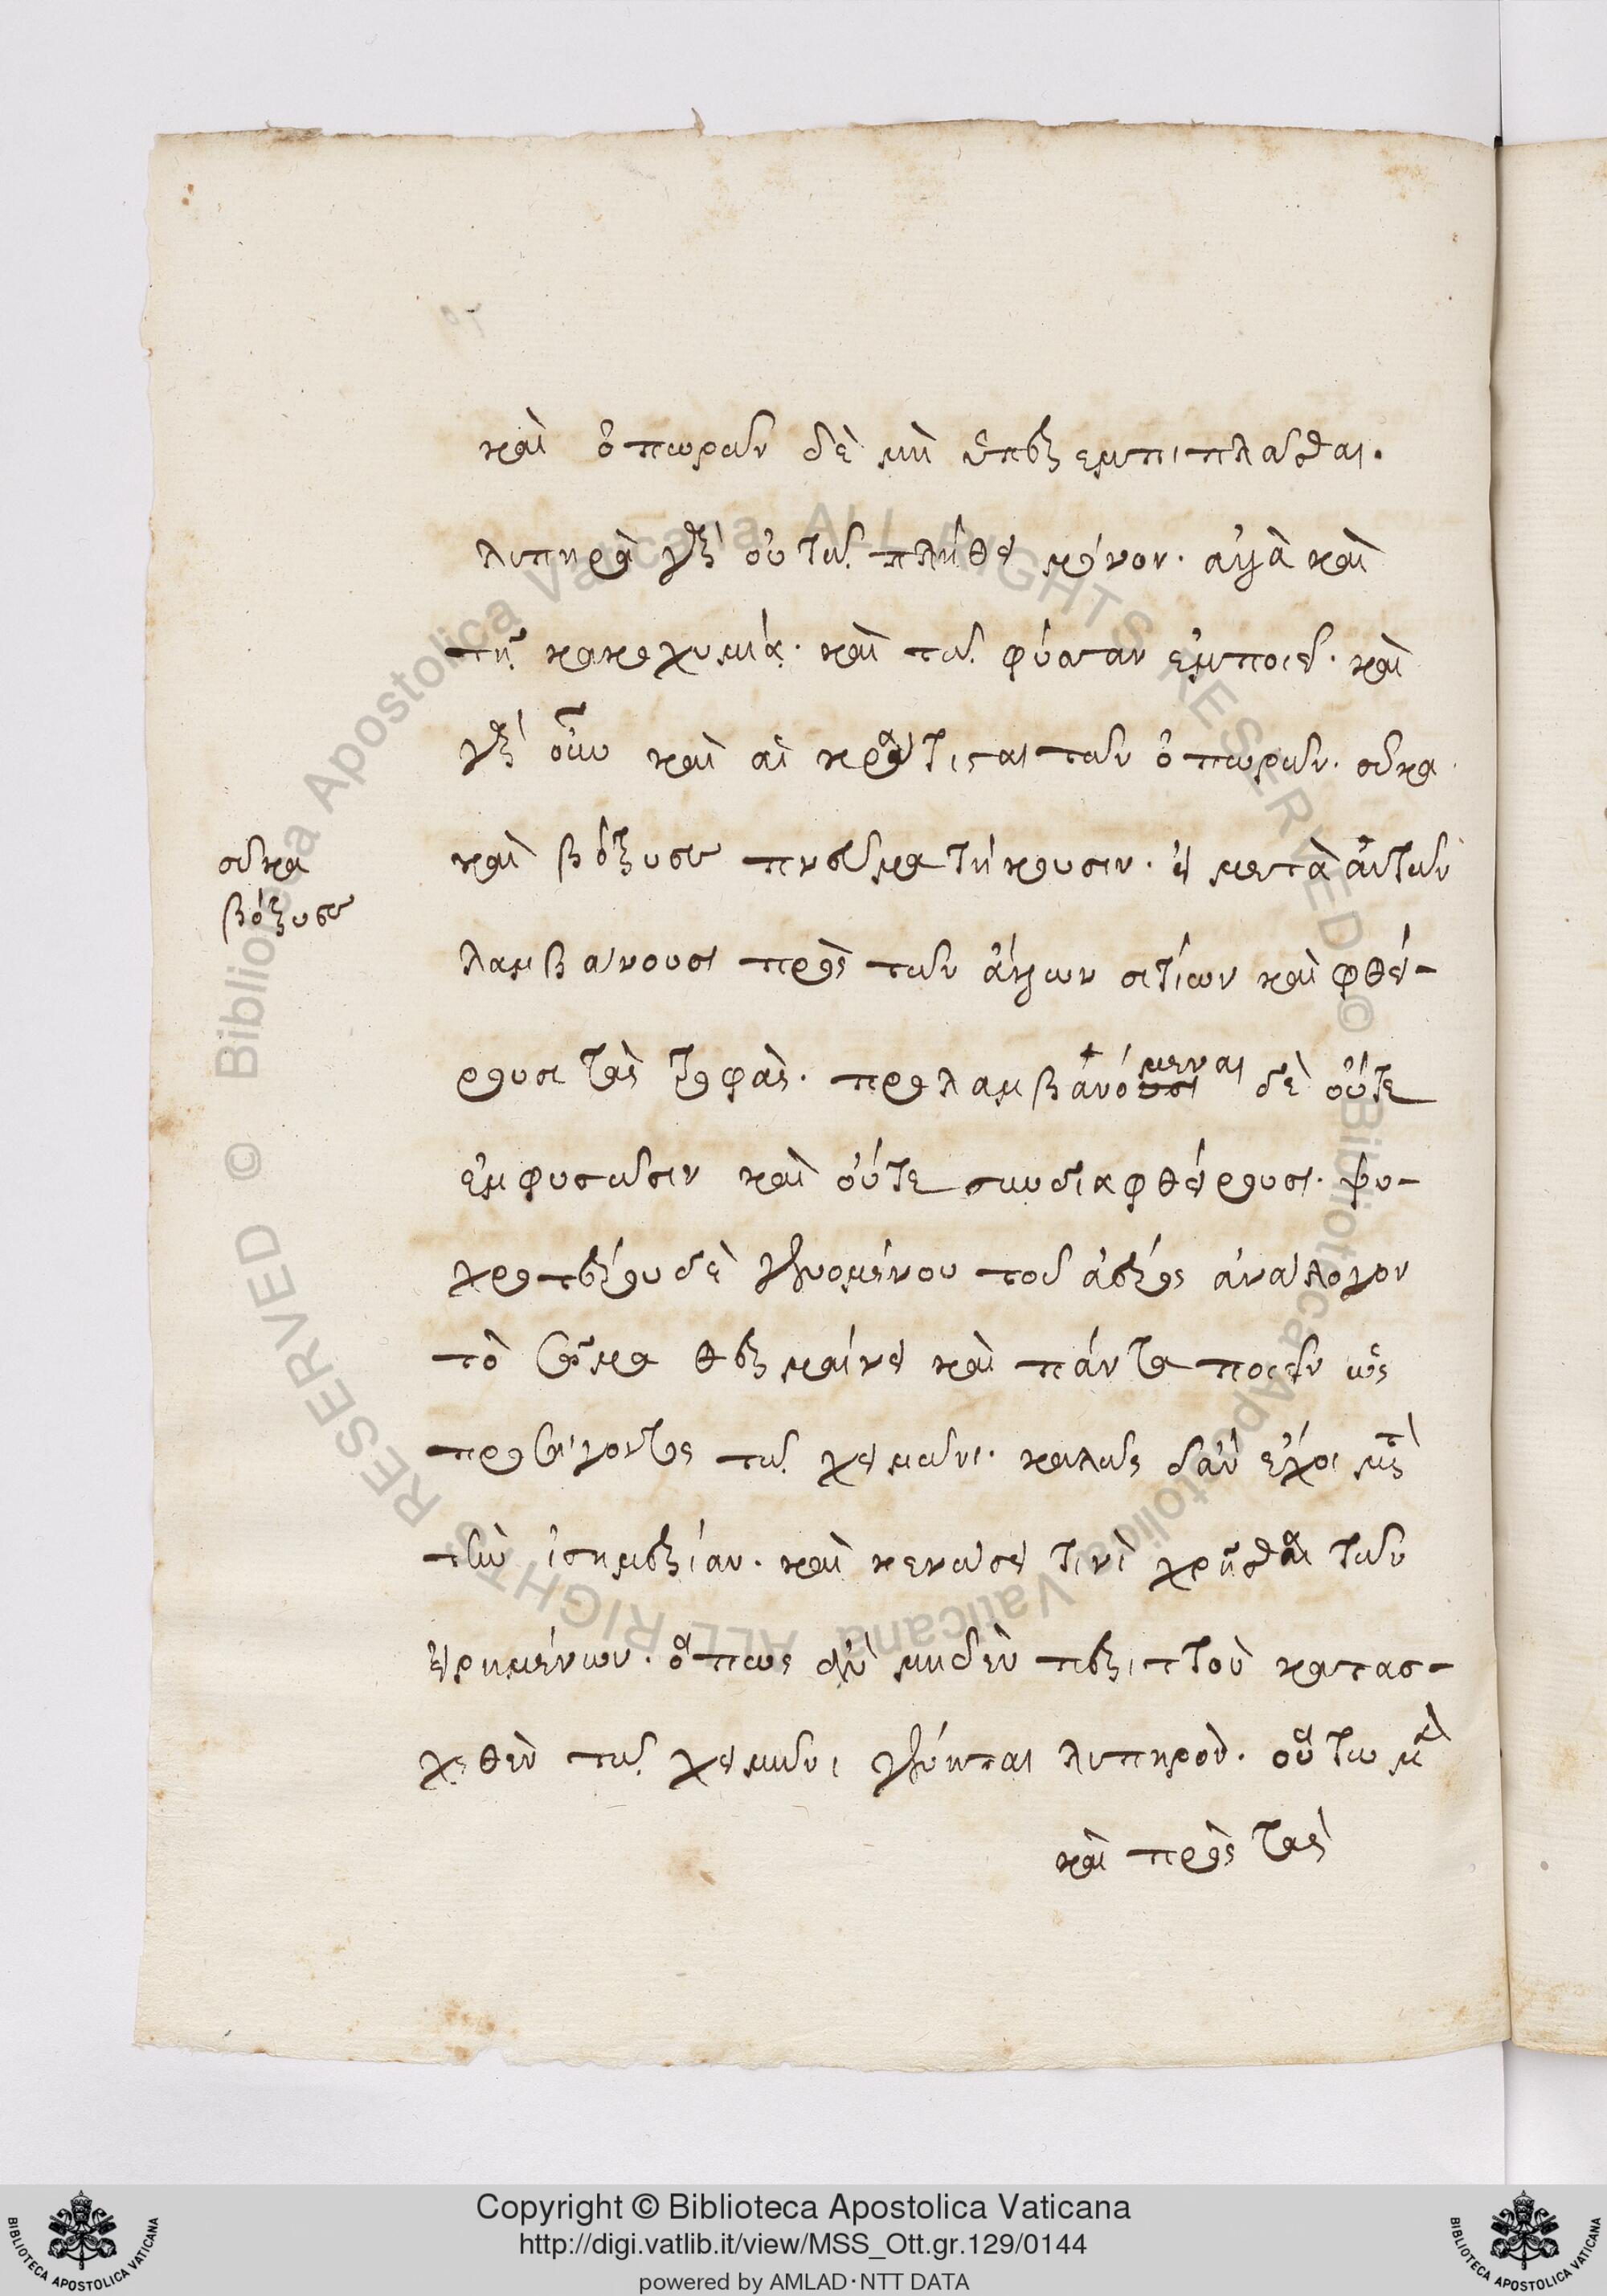 καὶ ὀπωρῶν δὲ μὴ ὑπερεμπιπλᾶσθαι.
λυπηρὰ γὰρ οὐ τῷ πλήθει μόνον. ἀλλὰ καὶ
τῇ κακοχυμίᾳ. καὶ τῷ φύσαν ἐμποιεῖν. καὶ
γὰρ οὖν καὶ αἱ κράτισται τῶν ὀπωρῶν. σῦκα
καὶ βότρυσι πνεῦμα τίκουσιν. εἰ μετὰ αὐτῶν
λαμβάνουσι πρὸς τῶν ἄλλων σιτίων καὶ φθεί-
ρουσι τὰς τροφὰς. προλαμβανόμεναι δὲ οὔτε
ἐμφυσῶσιν καὶ οὔτε συνδιαφθείρουσι. ψυ-
χροτέρου δὲ γενομένου τοῦ ἀέρος ἀνάλογον
τὸ σῶμα θερμαίνει καὶ πάντα ποιεῖν ὡς
προσήγοντες τῷ χειμῶνι. καλῶς δ' ἂν ἔχοι μετὰ
τὴν ἰσημερίαν. καὶ κενώσει τινὶ χρῆσθαι τῶν
εἰρημένων. ὅπως ἂν μηδὲν περιττὸν κατασ-
χεθὲν τῷ χειμῶνι γένηται λυπηρὸν. οὕτω μὲν
καὶ πρὸς τὰς
σῦκα
βότρυσι
Copyright © Biblioteca Apostolica Vaticana
http://digi.vatlib.it/view/MSS_Ott.gr.129/0144
powered by AMLAD·NTT DATA
BIBLIOTECA APOSTOLICA VATICANA
BIBLIOTECA APOSTOLICA VATICANA
© Biblioteca Apostolica Vaticana ALL RIGHTS RESERVED © Biblioteca Apostolica Vaticana ALL RIGHTS RESERVED